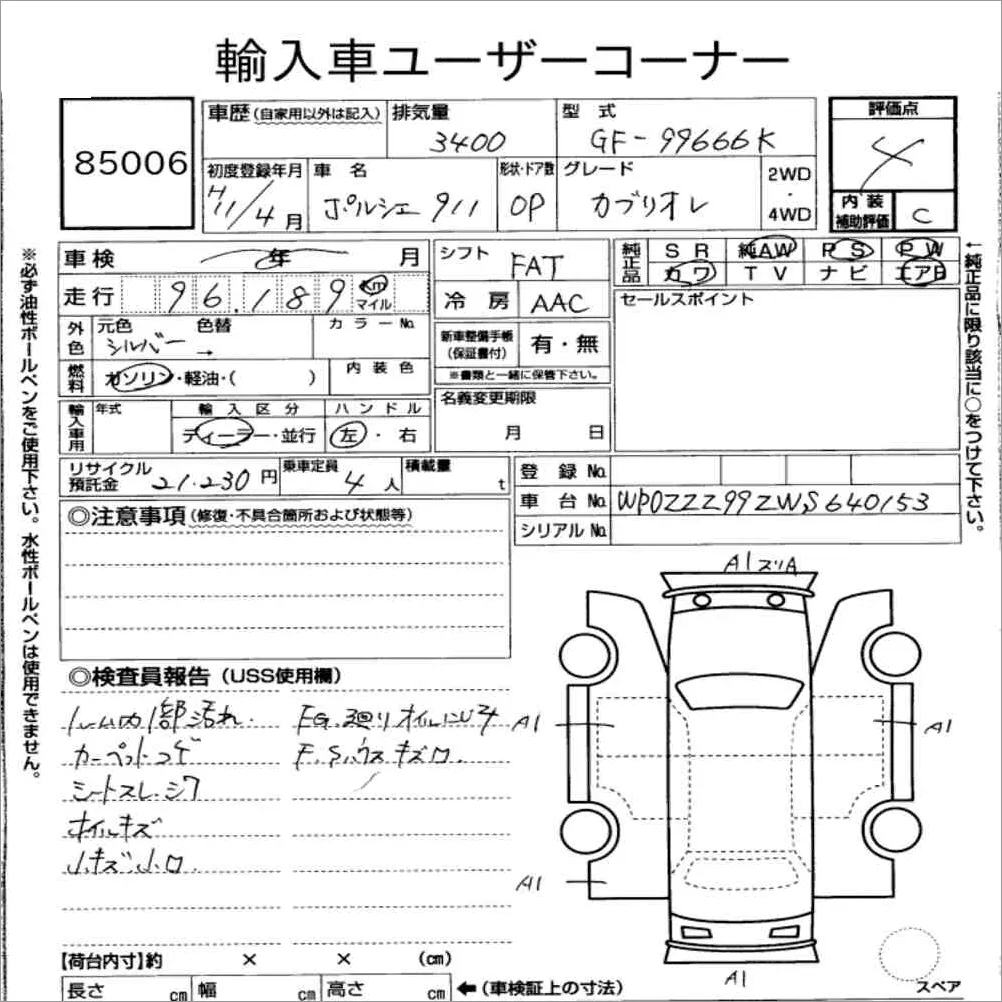 輸入車ユーザーコーナー
85006
車歴(自家用以外は記入)
排気量
3400
型式
GF-99666K
評価点
4
初度登録年月
H11/4月
車名
ポルシェ 911
形状・ドア数
OP
グレード
カブリオレ
2WD
・
4WD
内装
補助評価
C
車検 年 月
走行 96.189 km
マイル
シフト
FAT
冷房
AAC
純正品
SR 純AW PS PW
カワ TV ナビ エアB
セールスポイント
外色
元色 色替
シルバー →
カラーNo.
燃料
ガソリン・軽油・( )
内装色
新車整備手帳
(保証書付)
有・無
※書類と一緒に保管下さい。
名義変更期限
月 日
輸入車用
年式
輸入区分
ディーラー・並行
ハンドル
左・右
リサイクル
預託金
21.230円
乗車定員
4人
積載量
t
登録No.
車台No.
WP0ZZZ99ZWS640153
シリアルNo.
◎注意事項(修復・不具合箇所および状態等)
◎検査員報告(USS使用欄)
ルーム内1部汚れ.
カーペットコゲ
シートスレ.シワ
ホイルキズ
小キズ小凹
EG.廻りオイルニジミ
F.Sハウスキズ凹.
A1スリA
A1
A1
A1
A1
【荷台内寸】約 × × (cm)
長さ cm 幅 cm 高さ cm
←(車検証上の寸法)
スペア
※必ず油性ボールペンをご使用下さい。水性ボールペンは使用できません。
←純正品に限り該当に○をつけて下さい。